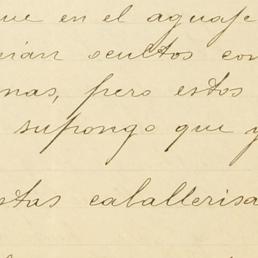 ue en el aguaje
ian ocultos con
nas, pero estos
supongo que y
stas caballerisa